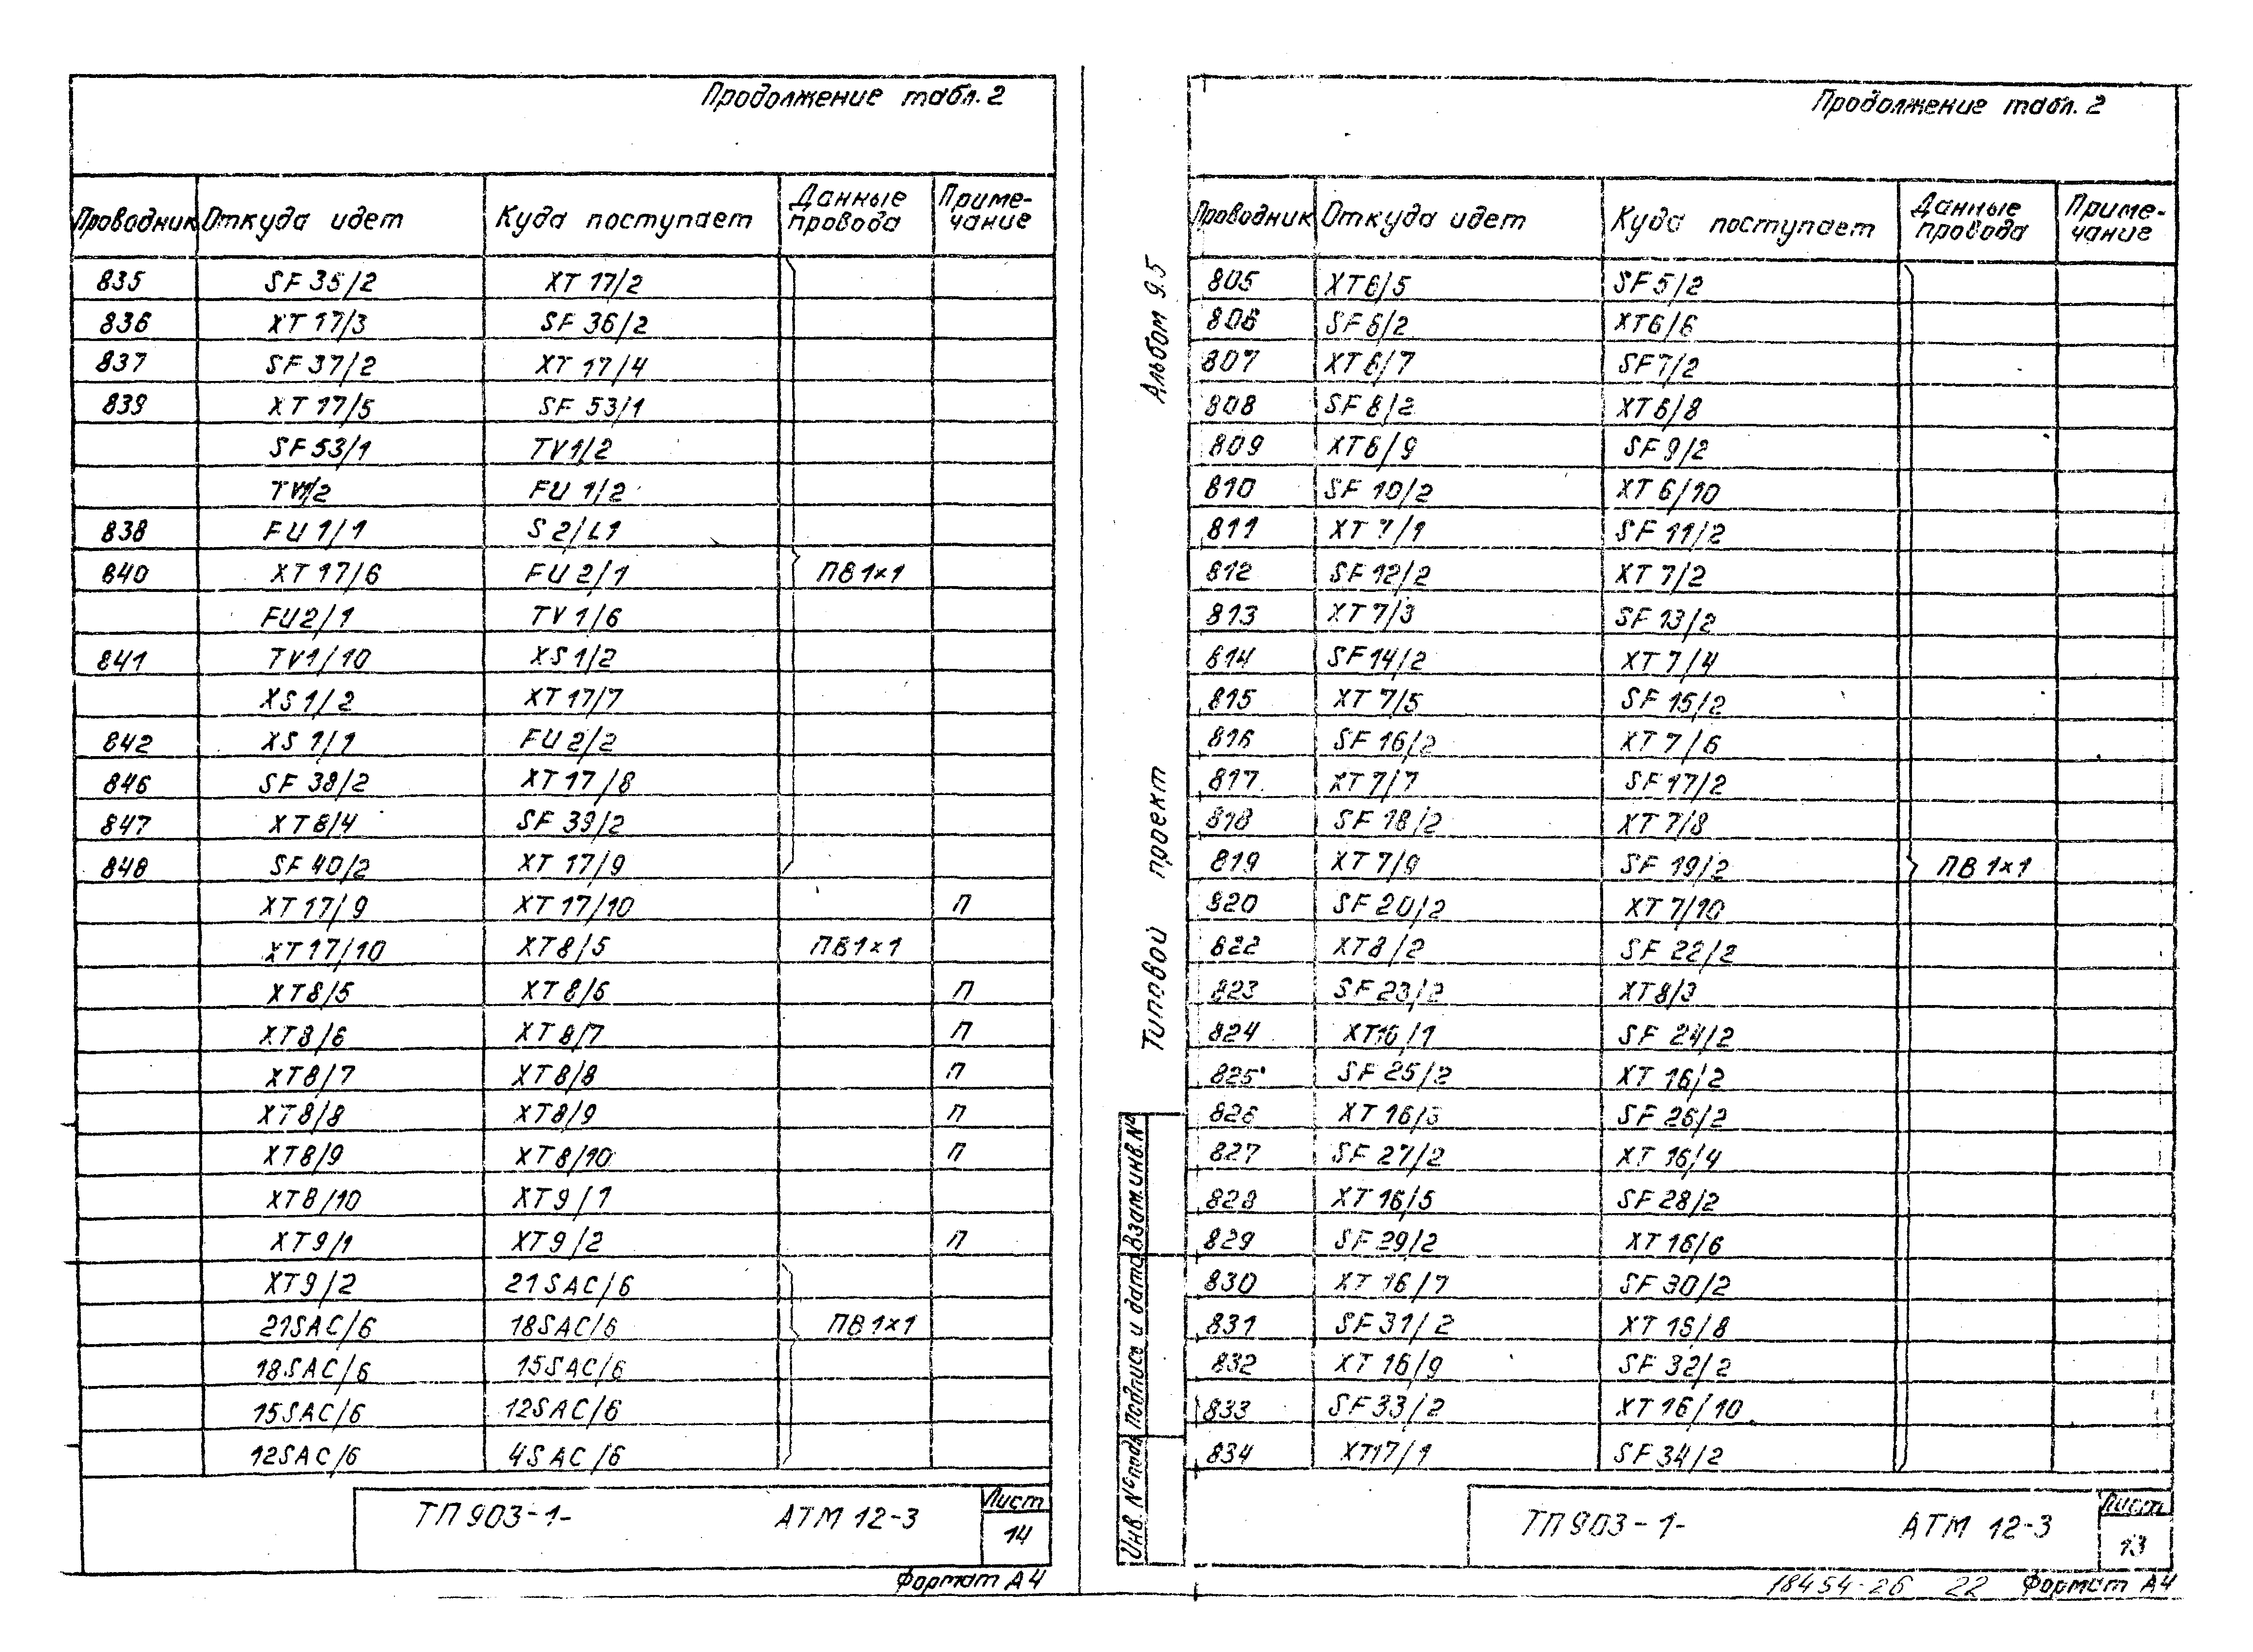 Продолжение табл. 2
Проводник Откуда идет Куда поступает Данные провода Примечание
835 SF 35/2 XT 17/2
836 XT 17/3 SF 36/2
837 SF 37/2 XT 17/4
839 XT 17/5 SF 53/1
SF 53/1 TV1/2
TV1/2 FU 1/2
838 FU 1/1 S 2/L1
840 XT 17/6 FU 2/1 ПВ 1×1
FU2/1 TV 1/6
841 TV1/10 XS 1/2
XS 1/2 XT 17/7
842 XS 1/1 FU 2/2
846 SF 38/2 XT 17/8
847 XT 8/4 SF 39/2
848 SF 40/2 XT 17/9
XT 17/9 XT 17/10 П
XT 17/10 XT8/5 ПВ1×1
XT8/5 XT 8/6 П
XT8/6 XT 8/7 П
XT8/7 XT8/8 П
XT8/8 XT8/9 П
XT8/9 XT8/10 П
XT8/10 XT9/1
XT9/1 XT9/2 П
XT9/2 21SAC/6
21SAC/6 18SAC/6 ПВ 1×1
18SAC/6 15SAC/6
15SAC/6 12SAC/6
12SAC/6 4SAC/6
ТП 903-1- АТМ 12-3 Лист
14
Формат А4
Альбом 9.5
Типовой проект
Инв. № подл. Подпись и дата Взам. инв. №
Продолжение табл. 2
Проводник Откуда идет Куда поступает Данные провода Примечание
805 XT6/5 SF5/2
806 SF6/2 XT6/6
807 XT6/7 SF7/2
808 SF8/2 XT6/8
809 XT6/9 SF9/2
810 SF 10/2 XT 6/10
811 XT 7/1 SF 11/2
812 SF 12/2 XT 7/2
813 XT 7/3 SF 13/2
814 SF14/2 XT 7/4
815 XT 7/5 SF 15/2
816 SF 16/2 XT 7/6
817 XT 7/7 SF 17/2
818 SF 18/2 XT 7/8
819 XT 7/9 SF 19/2 ПВ 1×1
820 SF 20/2 XT 7/10
822 XT8/2 SF 22/2
823 SF 23/2 XT8/3
824 XT16/1 SF 24/2
825 SF 25/2 XT 16/2
826 XT 16/3 SF 26/2
827 SF 27/2 XT 16/4
828 XT 16/5 SF 28/2
829 SF 29/2 XT 16/6
830 XT 16/7 SF 30/2
831 SF 31/2 XT 16/8
832 XT 16/9 SF 32/2
833 SF 33/2 XT 16/10
834 XT17/1 SF 34/2
ТП 903-1- АТМ 12-3 Лист
13
18454-26 22 Формат А4